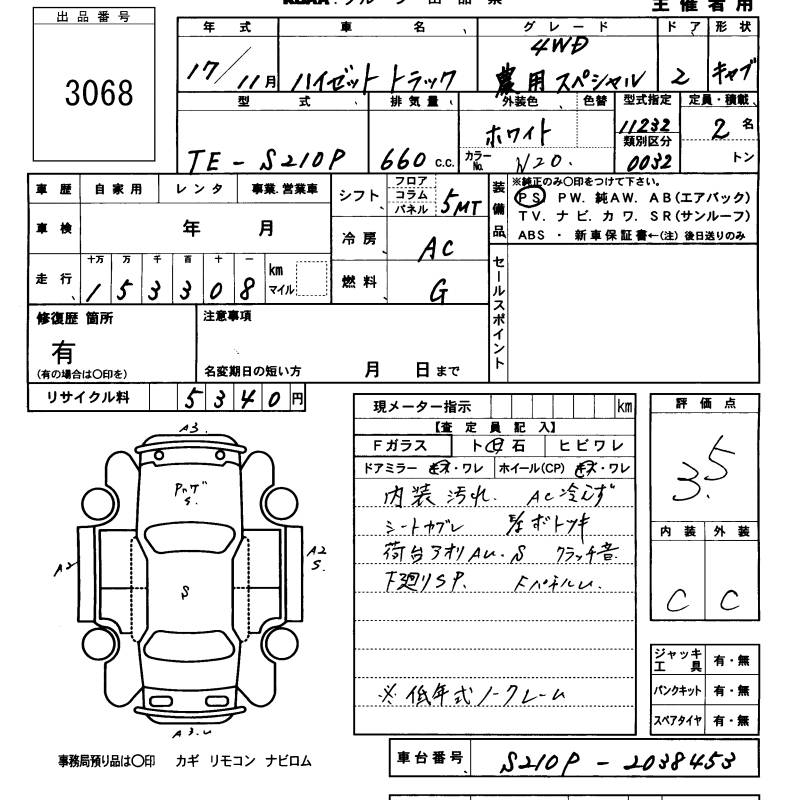 出品番号
3068
主催者用
年式 車名 グレード ドア 形状
17/11月 ハイゼットトラック 4WD 農用スペシャル 2 キャブ
型式 排気量 外装色 色替 型式指定 定員・積載
TE-S210P 660 c.c. ホワイト カラーNo. W20. 11232 類別区分 0032 2名 トン
車歴 自家用 レンタ 事業.営業車
車検 年 月
走行 十万 万 千 百 十 一 km マイル
153308
シフト フロア コラム パネル 5MT
冷房 AC
燃料 G
装備品 ※純正のみ〇印をつけて下さい。
PS. PW. 純AW. AB(エアバック)
TV. ナビ. カワ. SR(サンルーフ)
ABS ・ 新車保証書←(注) 後日送りのみ
セールスポイント
修復歴 箇所
有
(有の場合は〇印を)
注意事項
名変期日の短い方 月 日まで
リサイクル料 5340円
現メーター指示 km
【査定員記入】
Fガラス ト日石 ヒビワレ
ドアミラー ・ワレ ホイール(CP) ・ワレ
内装汚れ. AC冷えず
シートカブレ ボトツキ
荷台アオリAU.S クラッチ音
下廻りSP. FパネルU
※低年式ノークレーム
評価点
3.5
内装 外装
C C
ジャッキ 工具 有・無
パンクキット 有・無
スペアタイヤ 有・無
A3.
S.
A2
A2
S.
S
A3.U
事務局預り品は〇印 カギ リモコン ナビロム
車台番号 S210P-2038453